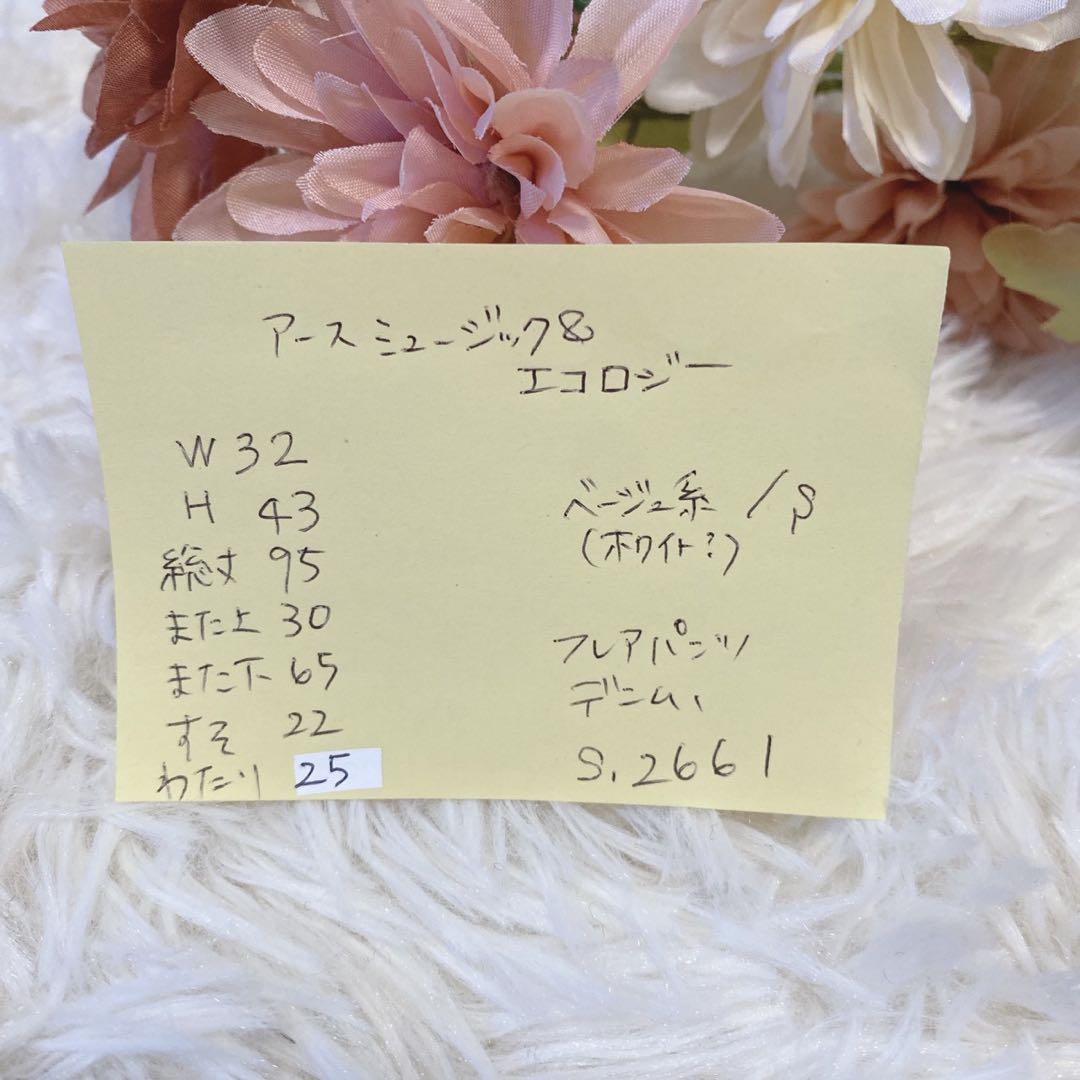 アースミュージック&
エコロジー
W 32
H 43
総丈 95
また上 30
また下 65
すそ 22
わたり 25
ベージュ系 / S
(ホワイト?)
フレアパンツ
デニム、
S. 2661